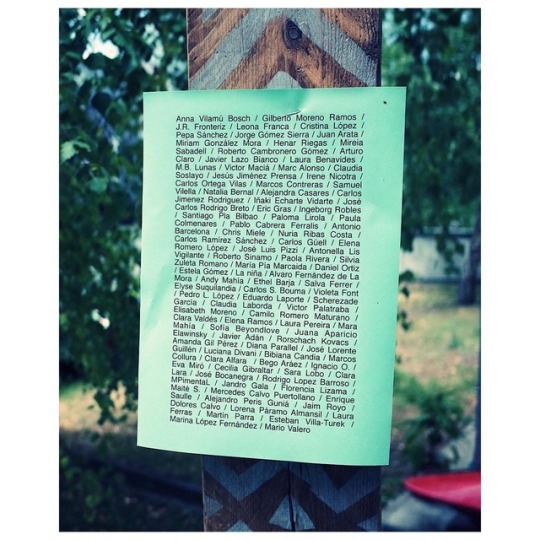 Anna Vilamú Bosch / Gilberto Moreno Ramos /
J.R. Fronteriz / Leona Franca / Cristina López /
Pepa Sánchez / Jorge Gómez Sierra / Juan Arata /
Miriam González Mora / Henar Riegas / Mireia
Sabadell / Roberto Cambronero Gómez / Arturo
Claro / Javier Lazo Bianco / Laura Benavides /
M.B. Lunas / Victor Macià / Marc Alonso / Claudia
Soslayo / Jesús Jiménez Prensa / Irene Nicotra /
Carlos Ortega Vilas / Marcos Contreras / Samuel
Vilella / Natalia Bernal / Alejandra Casares / Carlos
Jimenez Rodriguez / Iñaki Echarte Vidarte / José
Carlos Rodrigo Breto / Eric Gras / Ingeborg Robles
/ Santiago Pla Bilbao / Paloma Lirola / Paula
Colmenares / Pablo Cabrera Ferralis / Antonio
Barcelona / Chris Miele / Nuria Ribas Costa /
Carlos Ramírez Sánchez / Carlos Güell / Elena
Romero López / José Luis Pizzi / Antonella Lis
Vigilante / Roberto Sinamo / Paola Rivera / Silvia
Zuleta Romano / María Pía Marcaida / Daniel Ortiz
/ Estela Gómez / La niña / Alvaro Fernández de La
Mora / Andy Mahía / Ethel Barja / Salva Ferrer /
Elyse Suquilandia / Carlos S. Bouma / Violeta Font
/ Pedro L. López / Eduardo Laporte / Scherezade
García / Claudia Laborda / Víctor Palatraba /
Elisabeth Moreno / Camilo Romero Maturano /
Clara Valdés / Elena Ramos / Laura Pereira / Mara
Mahía / Sofía Beyondlove / Juana Aparicio
Elawinsky / Javier Adán / Rorschach Kovacs /
Amanda Gil Pérez / Diana Parallel / José Lorente
Guillén / Luciana Divani / Bibiana Candia / Marcos
Collura / Clara Alfara / Bego Aráez / Ignacio O. /
Eva Miró / Cecilia Gibraltar / Sara Lobo / Clara
Lara / José Bocanegra / Rodrigo Lopez Barroso /
MPimentaL / Jandro Gala / Florencia Lizama /
Maité S. / Mercedes Calvo Puertollano / Enrique
Saulle / Alejandro Peris Guniá / Jaim Royo /
Dolores Calvo / Lorena Páramo Almansil / Laura
Ferras / Martín Parra / Esteban Villa-Turek /
Marina López Fernández / Mario Valero